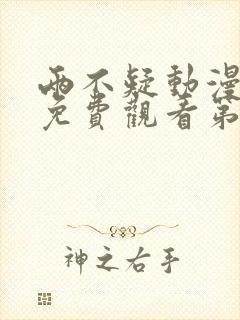 兩不疑動漫
免費觀看第
神之右手